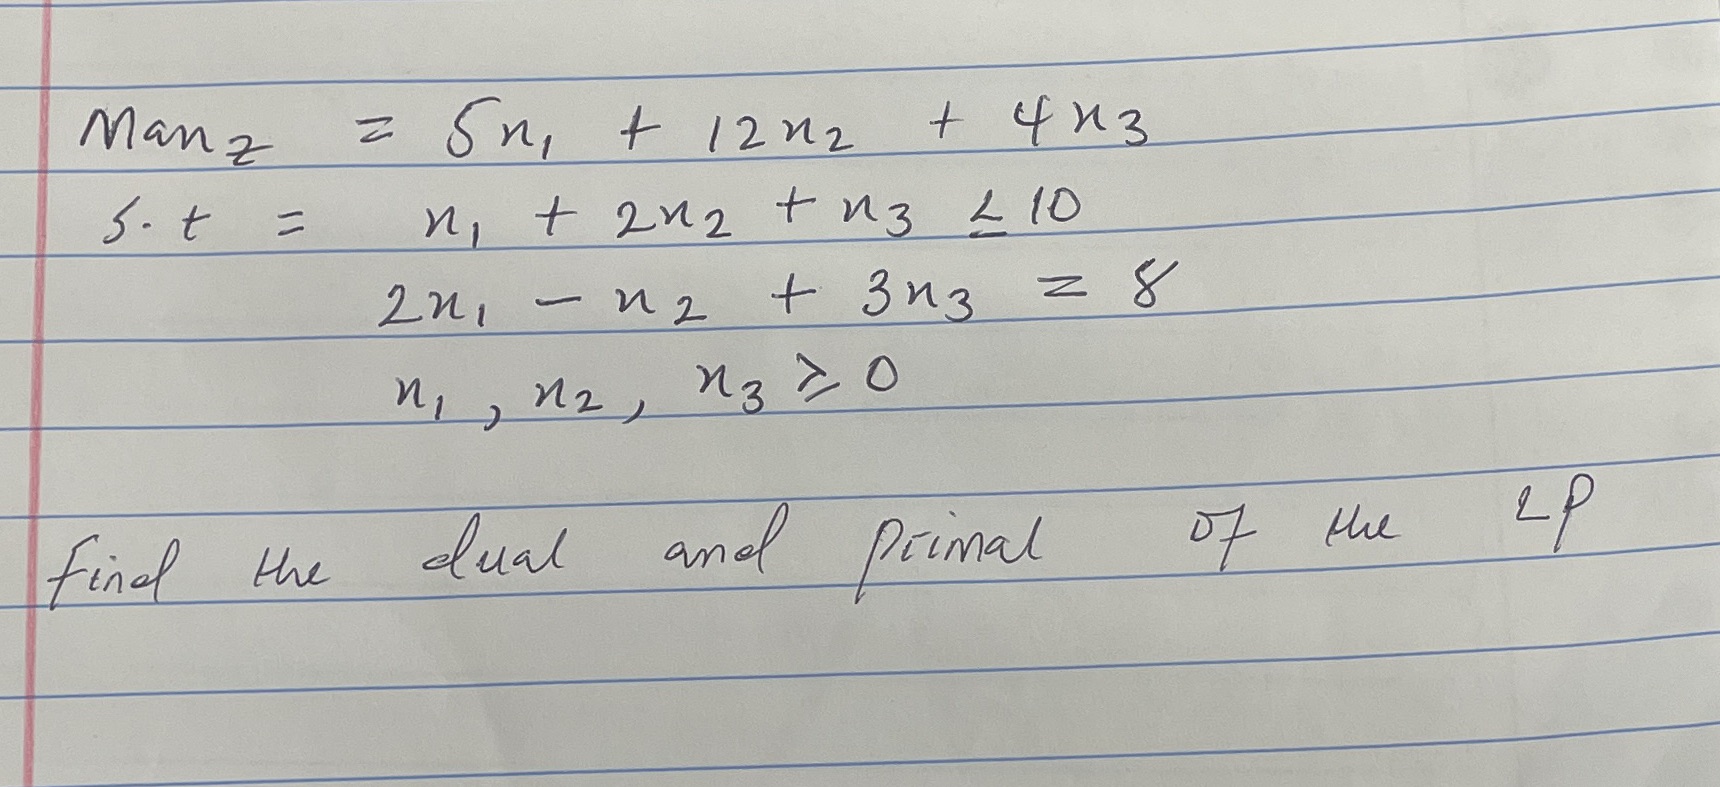 Max z = 5x₁ + 12x₂ + 4x₃
S.t = x₁ + 2x₂ + x₃ ≤ 10
2x₁ - x₂ + 3x₃ = 8
x₁, x₂, x₃ ≥ 0
find the dual and primal of the LP